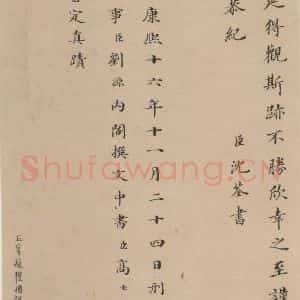 廷得觀斯跡不勝欣幸之至謹
恭紀
臣沈荃書
康熙十六年十一月二十四日刑
事臣劉源內閣撰文中書臣高士
定真蹟
Shufawang.CN